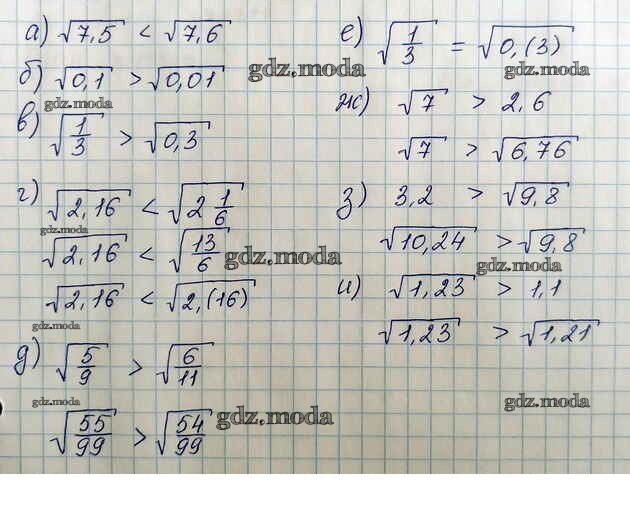 а) √7,5 < √7,6
б) √0,1 > √0,01
gdz.moda
gdz.moda
в) √(1/3) > √0,3
г) √2,16 < √(2 1/6)
gdz.moda
√2,16 < √(13/6)
gdz.moda
√2,16 < √2,(16)
gdz.moda
д) √(5/9) > √(6/11)
gdz.moda
√(55/99) > √(54/99)
gdz.moda
е) √(1/3) = √0,(3)
gdz.moda
ж) √7 > 2,6
√7 > √6,76
з) 3,2 > √9,8
√10,24 > √9,8
gdz.moda
и) √1,23 > 1,1
√1,23 > √1,21
gdz.moda